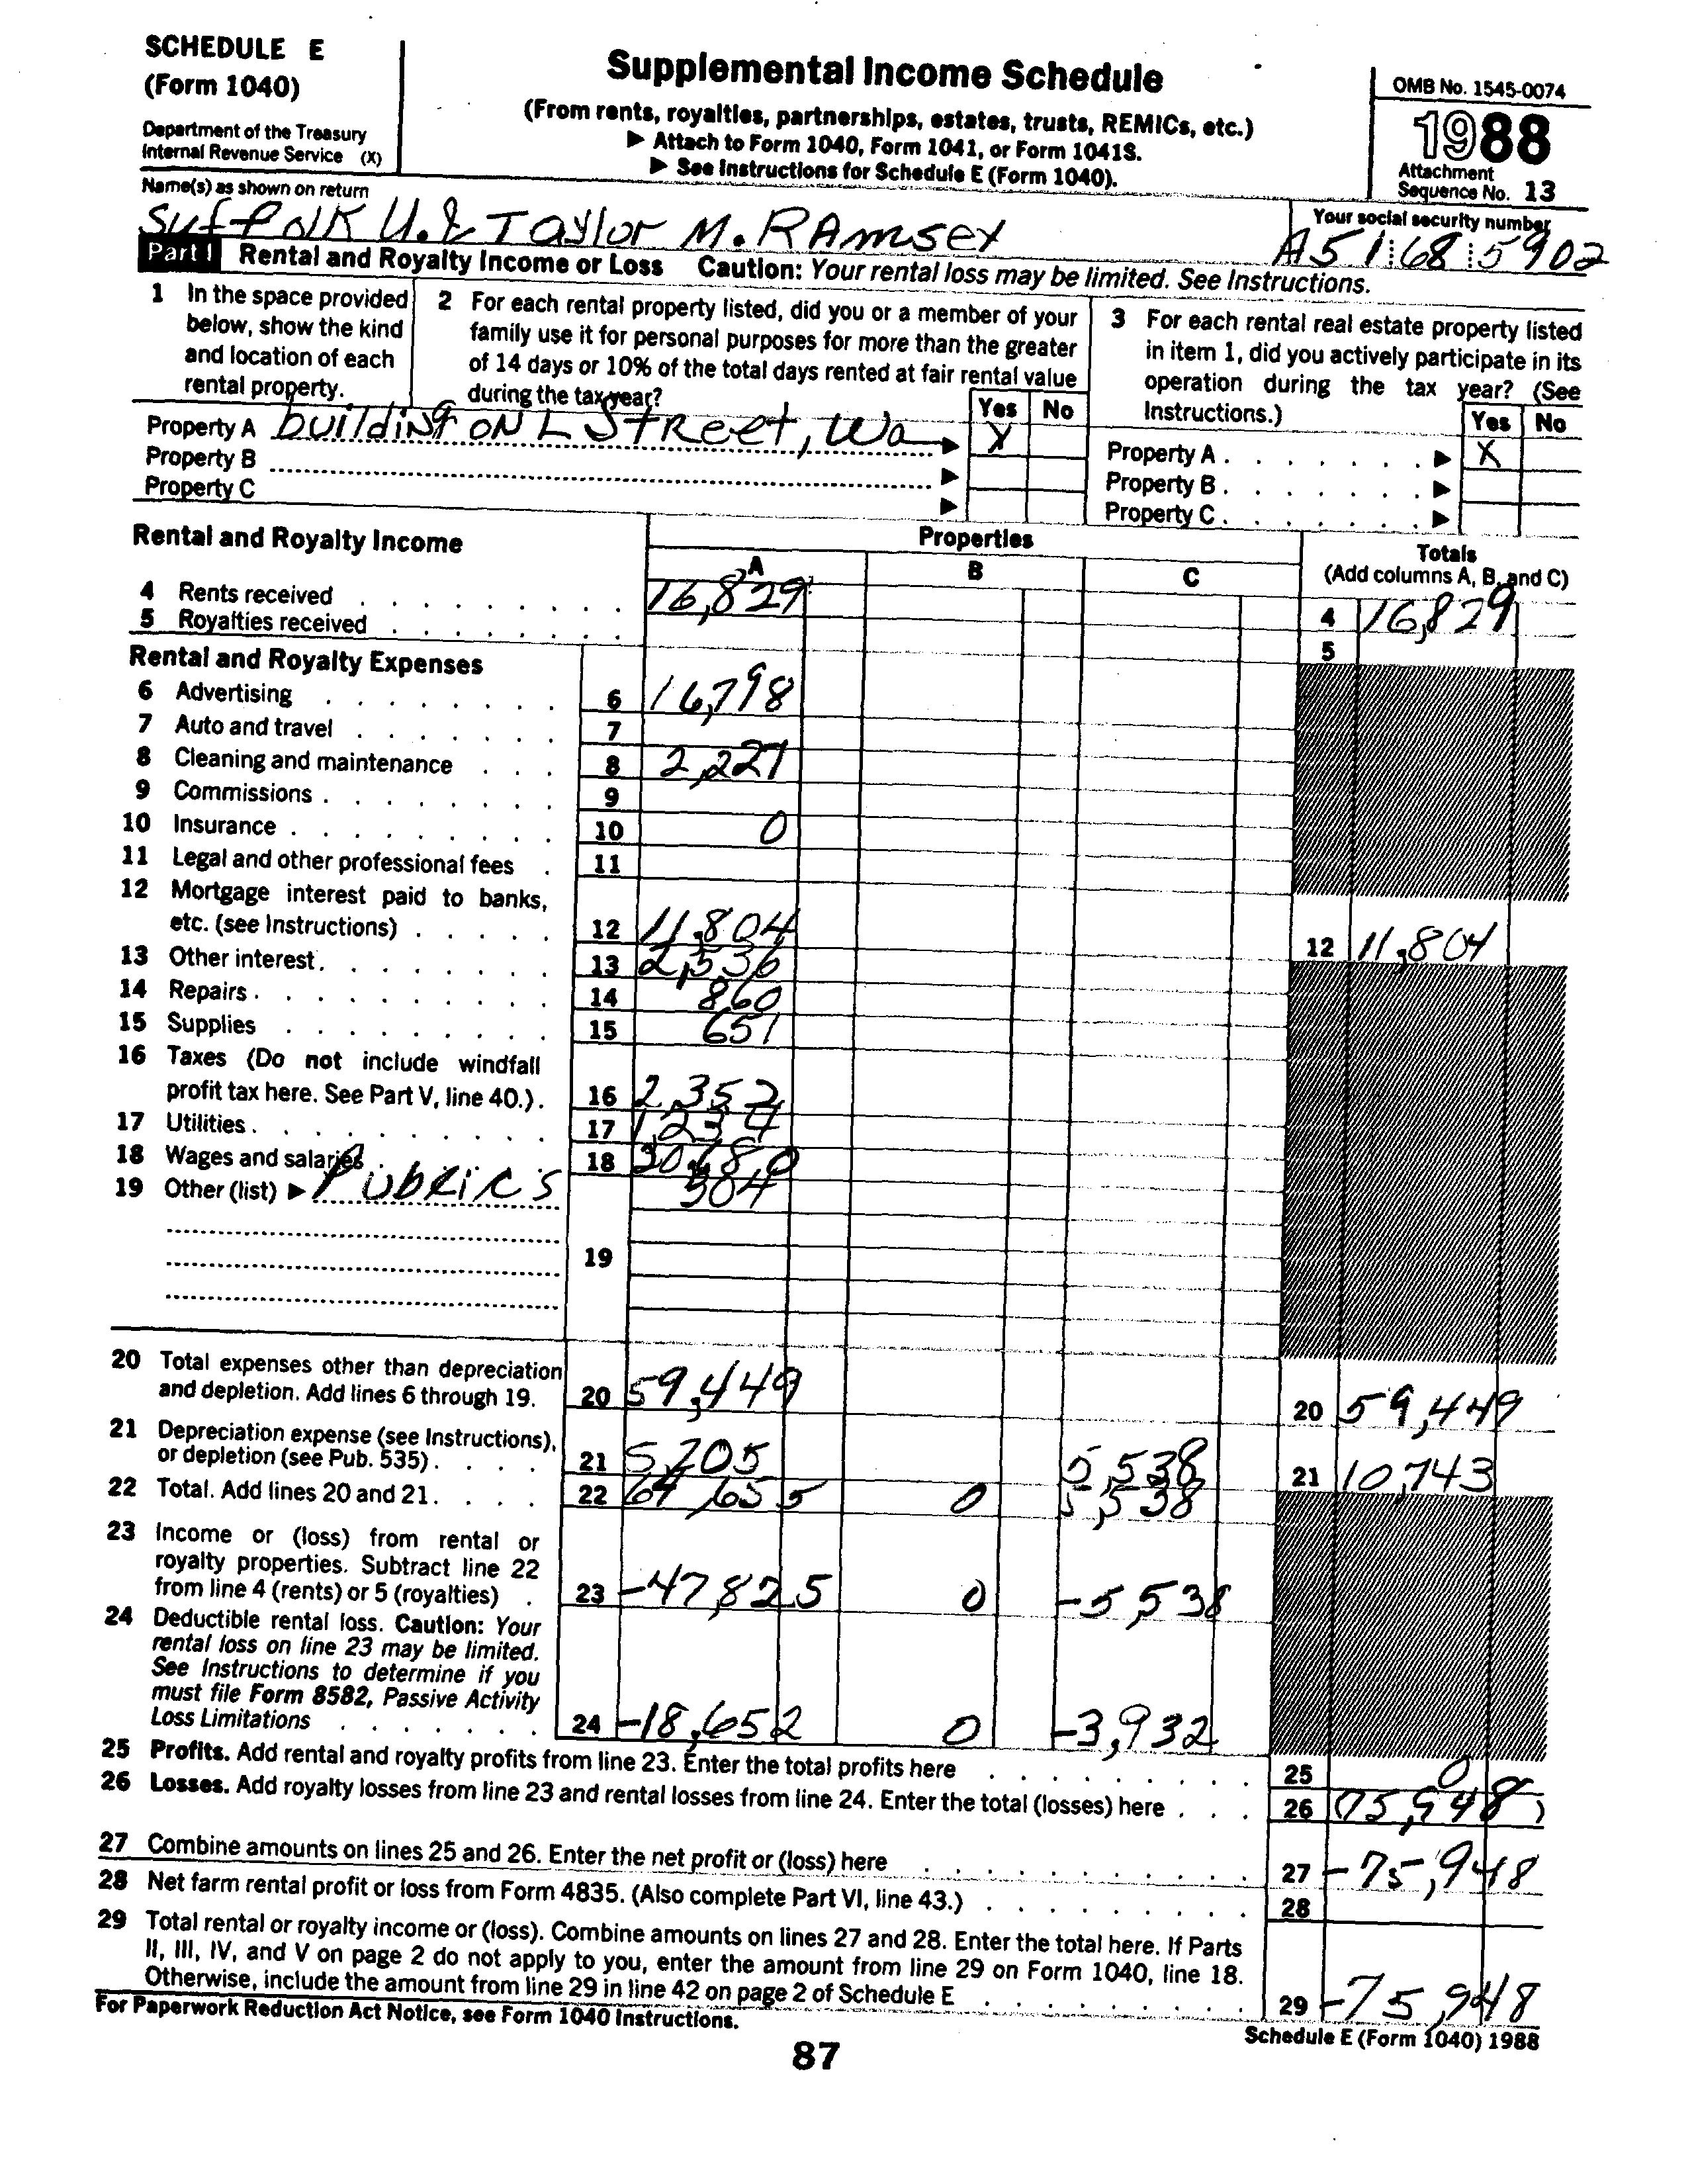 SCHEDULE E
(Form 1040)
Department of the Treasury
Internal Revenue Service (X)
Supplemental Income Schedule
(From rents, royalties, partnerships, estates, trusts, REMICs, etc.)
▶ Attach to Form 1040, Form 1041, or Form 1041S.
▶ See Instructions for Schedule E (Form 1040).
OMB No. 1545-0074
1988
Attachment
Sequence No. 13
Name(s) as shown on return
Suffolk U. & Taylor M. RAmsey
Your social security number
A51 68 5902
Part I Rental and Royalty Income or Loss Caution: Your rental loss may be limited. See Instructions.
1 In the space provided
below, show the kind
and location of each
rental property.
2 For each rental property listed, did you or a member of your
family use it for personal purposes for more than the greater
of 14 days or 10% of the total days rented at fair rental value
during the tax year?
Yes No
3 For each rental real estate property listed
in item 1, did you actively participate in its
operation during the tax year? (See
Instructions.)
Yes No
Property A building ON L Street, Wa ▶ X
Property B ▶
Property C ▶
Property A ▶ X
Property B ▶
Property C ▶
Rental and Royalty Income
Properties
A B C
Totals
(Add columns A, B, and C)
4 Rents received 16,829 4 16,829
5 Royalties received 5
Rental and Royalty Expenses
6 Advertising 6 16,798
7 Auto and travel 7
8 Cleaning and maintenance 8 2,227
9 Commissions 9
10 Insurance 10 0
11 Legal and other professional fees 11
12 Mortgage interest paid to banks,
etc. (see Instructions) 12 11,804 12 11,804
13 Other interest 13 2,536
14 Repairs 14 860
15 Supplies 15 651
16 Taxes (Do not include windfall
profit tax here. See Part V, line 40.) 16 2,352
17 Utilities 17 1,234
18 Wages and salaries 18
19 Other (list) ▶
19
20 Total expenses other than depreciation
and depletion. Add lines 6 through 19. 20 59,449 20 59,449
21 Depreciation expense (see Instructions),
or depletion (see Pub. 535) 21 5,205 5,538 21 10,743
22 Total. Add lines 20 and 21 22 64,655 0 5,538
23 Income or (loss) from rental or
royalty properties. Subtract line 22
from line 4 (rents) or 5 (royalties) 23 -47,825 0 -5,538
24 Deductible rental loss. Caution: Your
rental loss on line 23 may be limited.
See Instructions to determine if you
must file Form 8582, Passive Activity
Loss Limitations 24 -18,652 0 -3,932
25 Profits. Add rental and royalty profits from line 23. Enter the total profits here 25 0
26 Losses. Add royalty losses from line 23 and rental losses from line 24. Enter the total (losses) here 26 (75,948)
27 Combine amounts on lines 25 and 26. Enter the net profit or (loss) here 27 -75,948
28 Net farm rental profit or loss from Form 4835. (Also complete Part VI, line 43.) 28
29 Total rental or royalty income or (loss). Combine amounts on lines 27 and 28. Enter the total here. If Parts
II, III, IV, and V on page 2 do not apply to you, enter the amount from line 29 on Form 1040, line 18.
Otherwise, include the amount from line 29 in line 42 on page 2 of Schedule E 29 -75,948
For Paperwork Reduction Act Notice, see Form 1040 Instructions.
Schedule E (Form 1040) 1988
87